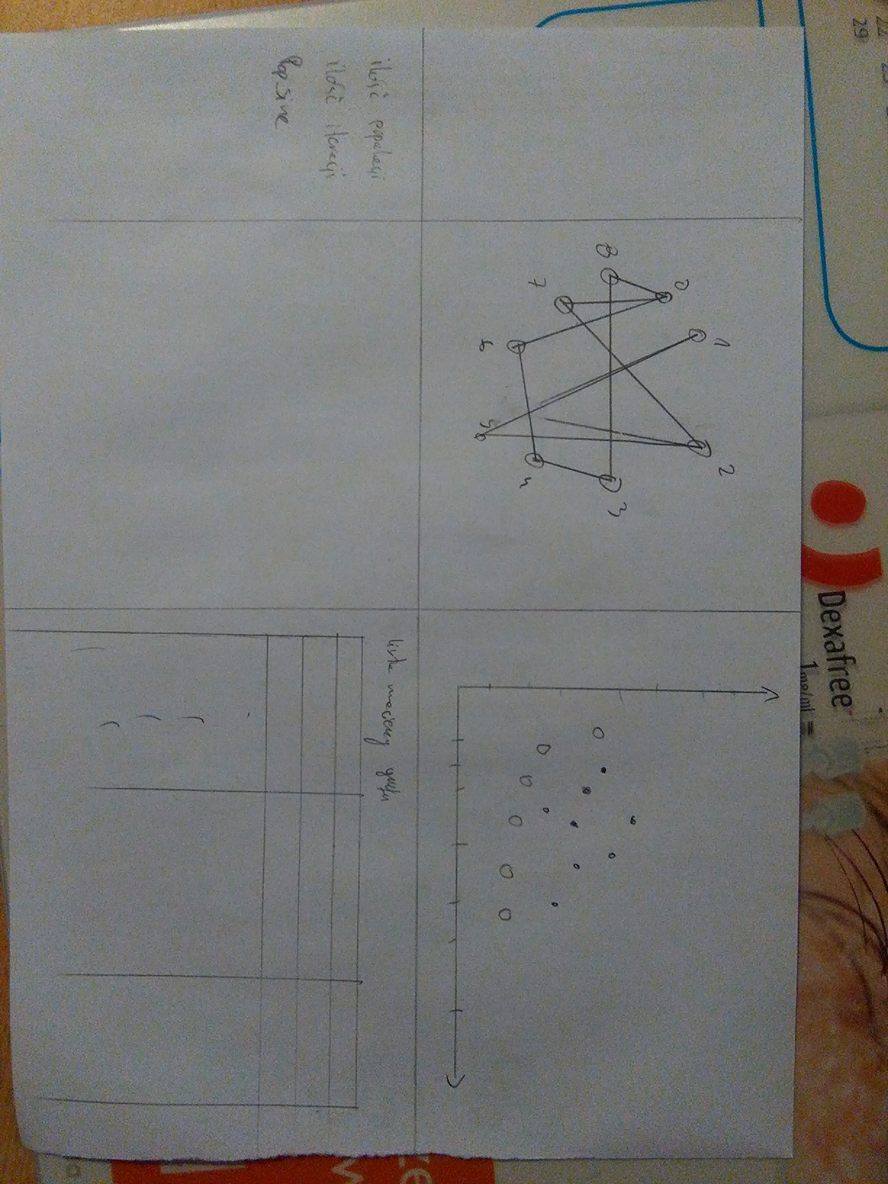 29
Dexafree
1mg/ml =
1
2
0
8
3
7
4
6
5
ilość populacji
ilość iteracji
Pop_sine
lista macierzy grafu